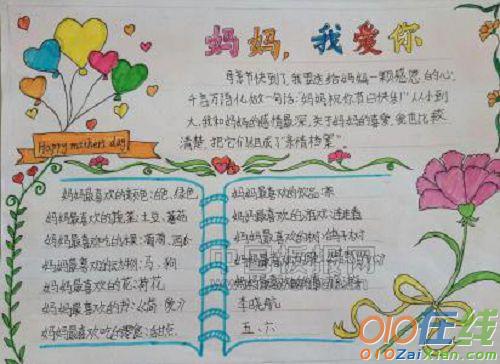 妈妈，我爱你
母亲节快到了，我要送给妈妈一颗感恩的心，
千言万语化做一句话："妈妈祝你节日快乐！"从小到
大，我和妈妈的感情最深，关于妈妈的喜爱，我也比较
清楚，把它们组成了"亲情档案"
Happy mothers day
妈妈最喜欢的颜色：白色、绿色
妈妈最喜欢的蔬菜：土豆、蘑菇
妈妈最喜欢吃的水果：葡萄、西瓜
妈妈最喜欢的动物：马、狗
妈妈最喜欢的花：荷花
妈妈最喜欢的
妈妈最喜欢吃的零食：甜点
妈妈最喜欢的饮品：茶
妈妈最喜欢的游戏：连连看
妈妈最喜欢的树：鸽子树
妈妈最喜欢的
妈妈最喜欢的
李晓航
五、六
中国板报网
010在线
010ZaiXian.com